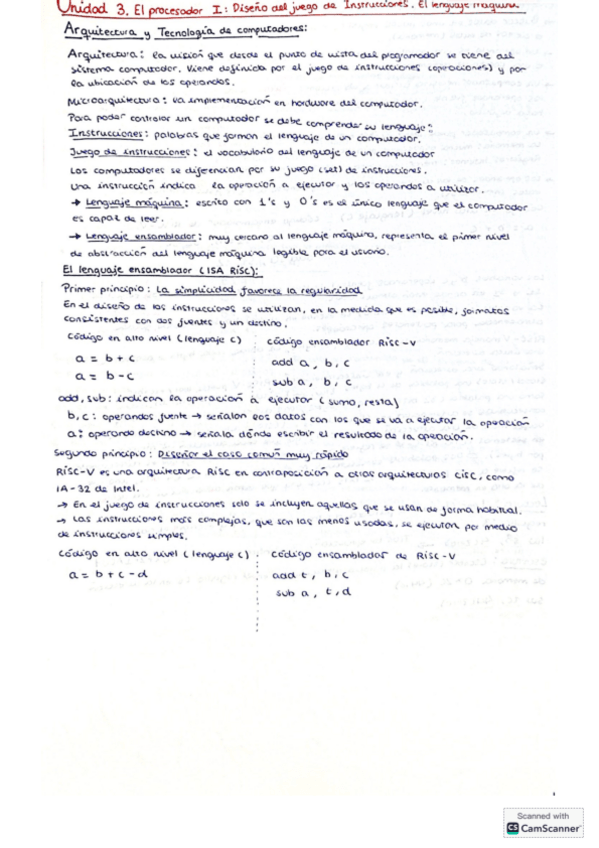 Unidad 3. El procesador I: Diseño del juego de Instrucciones. El lenguaje máquina
Arquitectura y Tecnología de computadores:
Arquitectura: la visión que desde el punto de vista del programador se tiene del
sistema computador. Viene definida por el juego de instrucciones (operaciones) y por
la ubicación de los operandos.
Microarquitectura: la implementación en hardware del computador.
Para poder controlar un computador se debe comprender su lenguaje:
Instrucciones: palabras que forman el lenguaje de un computador.
Juego de instrucciones: el vocabulario del lenguaje de un computador
Los computadores se diferencian por su juego (set) de instrucciones.
Una instrucción indica la operación a ejecutar y los operandos a utilizar.
→ Lenguaje máquina: escrito con 1's y 0's es el único lenguaje que el computador
es capaz de leer.
→ Lenguaje ensamblador: muy cercano al lenguaje máquina, representa el primer nivel
de abstracción del lenguaje máquina legible para el usuario.
El lenguaje ensamblador (ISA RISC):
Primer principio: La simplicidad favorece la regularidad
En el diseño de las instrucciones se utilizan, en la medida que es posible, formatos
consistentes con dos fuentes y un destino.
Código en alto nivel (lenguaje C) código ensamblador RISC-V
a = b + c add a, b, c
a = b - c sub a, b, c
add, sub: indican la operación a ejecutar (suma, resta)
b, c: operandos fuente → señalan los datos con los que se va a ejecutar la operación
a: operando destino → señala dónde escribir el resultado de la operación.
Segundo principio: Diseñar el caso común muy rápido
RISC-V es una arquitectura RISC en contraposición a otras arquitecturas CISC, como
IA-32 de Intel.
→ En el juego de instrucciones solo se incluyen aquellas que se usan de forma habitual.
→ Las instrucciones más complejas, que son las menos usadas, se ejecutan por medio
de instrucciones simples.
Código en alto nivel (lenguaje C) código ensamblador de RISC-V
a = b + c - d add t, b, c
sub a, t, d
Scanned with
CS CamScanner